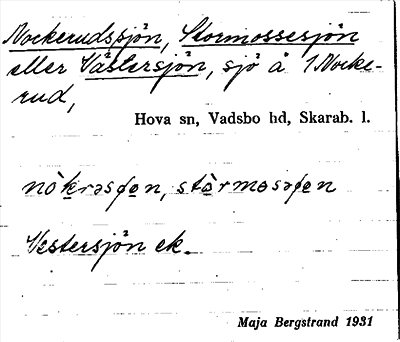 Nockerudssjön, Stormossesjön
eller Västersjön, sjö å 1 Nocke-
rud,
Hova sn, Vadsbo hd, Skarab. l.
Vestersjön ek.
Maja Bergstrand 1931